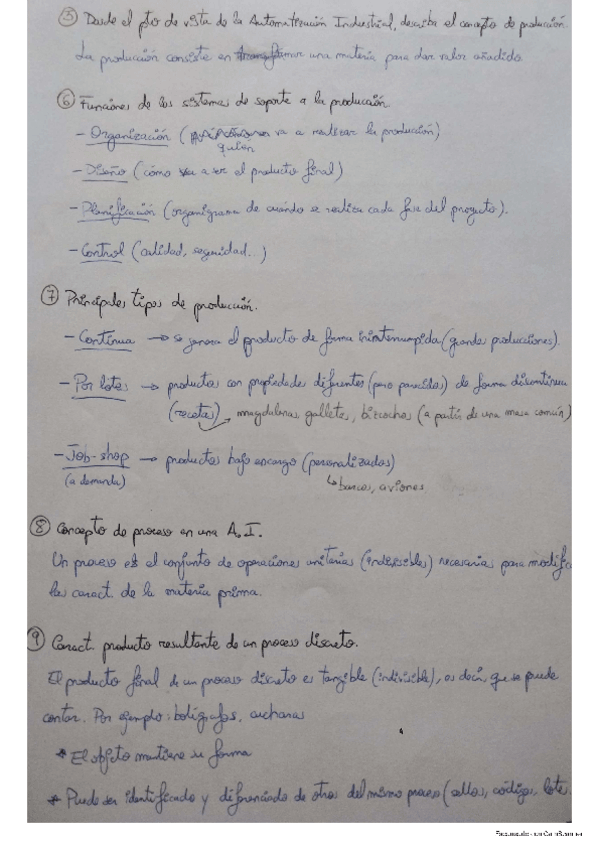 ⑤ Desde el pto de vista de la Automatización Industrial, describa el concepto de producción.
La producción consiste en transformar una materia para dar valor añadido.
⑥ Funciones de los sistemas de soporte a la producción.
- Organización ( quien va a realizar la producción)
- Diseño (cómo va a ser el producto final)
- Planificación (organigrama de cuándo se realiza cada fase del proyecto).
- Control (calidad, seguridad...)
⑦ Principales tipos de producción.
- Continua → se genera el producto de forma ininterrumpida (grandes producciones).
- Por lotes → productos con propiedades diferentes (pero parecidos) de forma discontinua
(recetas) → magdalenas, galletas, bizcochos (a partir de una masa común)
- Job-shop → productos bajo encargo (personalizados)
(a demanda) ↳ barcos, aviones
⑧ Concepto de proceso en una A.I.
Un proceso es el conjunto de operaciones unitarias (indivisibles) necesarias para modific
las caract. de la materia prima.
⑨ Caract. producto resultante de un proceso discreto.
El producto final de un proceso discreto es tangible (indivisible), es decir, que se puede
contar. Por ejemplo: bolígrafos, cucharas
* El objeto mantiene su forma
* Puede ser identificado y diferenciado de otros del mismo proceso (sellos, códigos, lote,